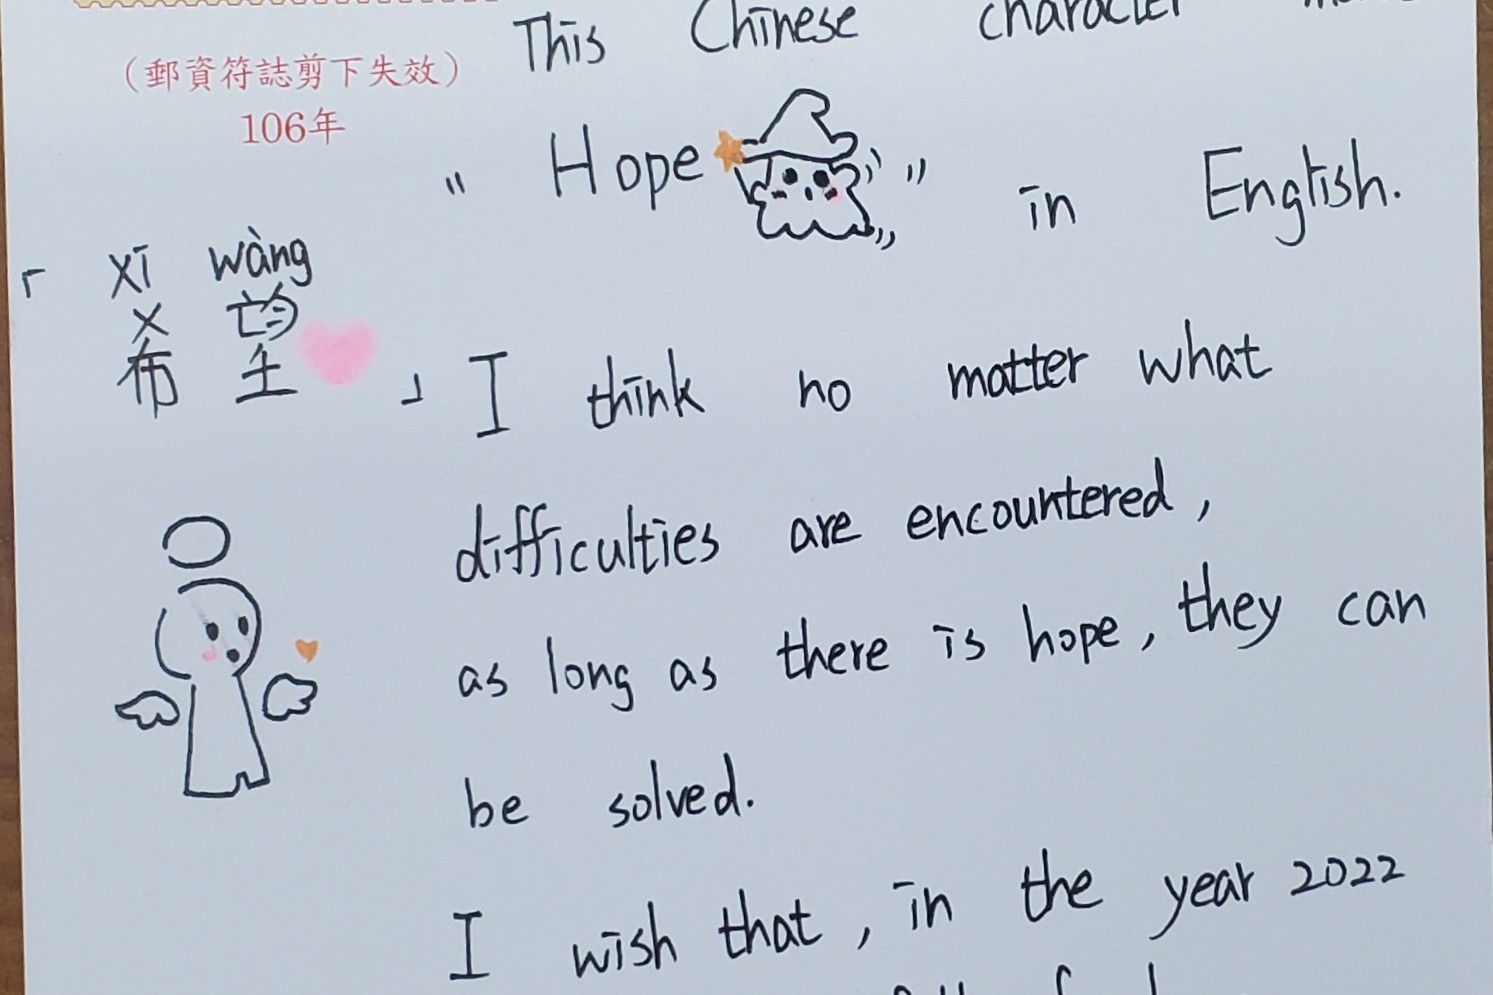 (郵資符誌剪下失效)
106年
This Chinese character
"Hope" in English.
xī wàng
「希望」
I think no matter what
difficulties are encountered,
as long as there is hope, they can
be solved.
I wish that, in the year 2022